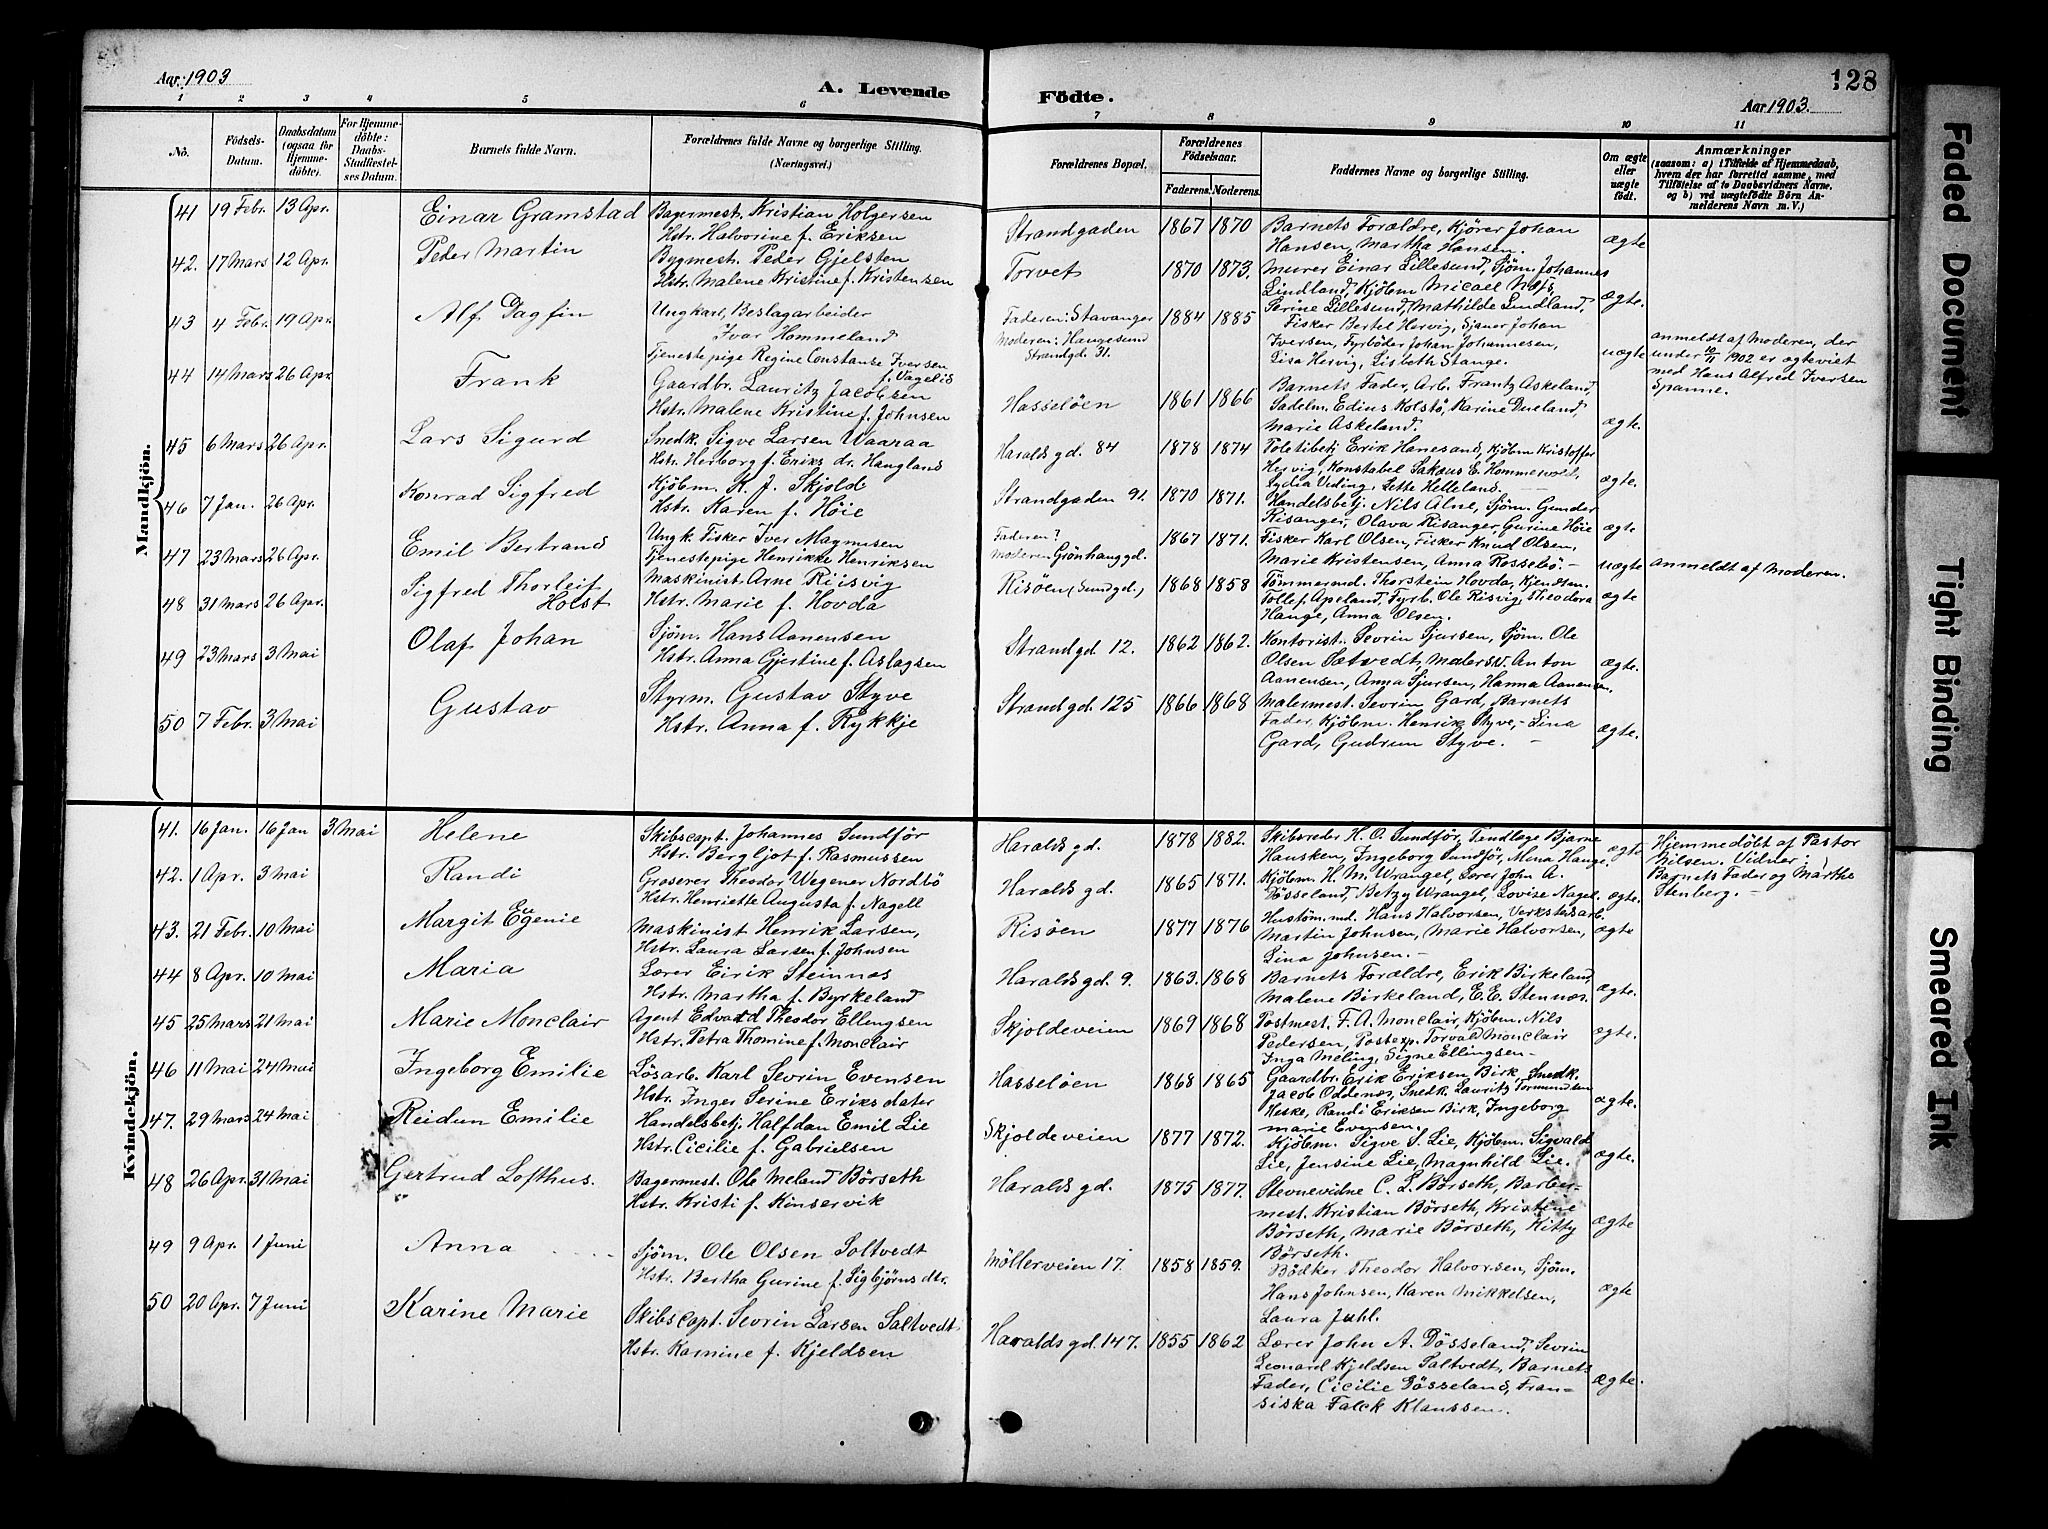 Aar 1903
A. Levende
Födte.
Aar 1903.
128
1 2 3 4 5 6 7 8 9 10 11
No.
Födsels-Datum.
Daabsdatum (ogsaa for Hjemmedöbte).
For Hjemmedöbte: Daabs-Stadfæstelses Datum.
Barnets fulde Navn.
Forældrenes fulde Navne og borgerlige Stilling. (Næringsvei.)
Forældrenes Bopæl.
Forældrenes Födselsaar.
Faderens. Moderens.
Faddernes Navne og borgerlige Stilling.
Om ægte eller uægte födt.
Anmærkninger
(saasom: a) i Tilfælde af Hjemmedaab, hvem der har forrettet samme, med Tilföielse af to Daabsvidners Navne, og b) ved uægtefödte Börn Anmelderens Navn m. V.)
Mandkjön.
41 19 Febr. 13 Apr. Einar Gramstad
Bagermest. Kristian Holgersen
Hstr. Halvorine f. Eriksen
Strandgaden 1867 1870
Barnets Forældre, Kjörer Johan
Hansen, Martha Hansen.
ægte
42. 17 Mars 12 Apr. Peder Martin
Bygmest. Peder Gjelsten
Hstr. Malene Kristine f. Kristensen
Torvet 1870 1873.
Murer Einar Lillesund, Sjöm. Johannes
Lindland, Kjöbm Micael Næs,
Serine Lillesund, Mathilde Lindland,
ægte.
43 4 Febr. 19 Apr. Alf Dagfin
Ungkarl, Beslagarbeider
Ivar Hommeland
Tjenestepige Regine Constanse Iversen
f. Vagelid
Faderen: Stavanger
Moderen: Haugesund
Strandgd. 31.
1884 1885
Fisker Bertel Hervig, Sjauer Johan
Iversen, Fyrböder Johan Johannesen,
Lisa Hervig, Lisbeth Stange.
uægte
anmeldt af Moderen, der
under 10/11 1902 er ægteviet
med Hans Alfred Iversen
Spanne.
44 14 Mars 26 Apr. Frank
Gaardbr. Lauritz Jacobsen
Hstr. Malene Kristine f. Johnsen
Hasselöen 1861 1866
Barnets Fader, Arb. Frantz Askeland,
Sadelm. Edius Kolstö, Karine Dueland,
Marie Askeland.
ægte.
45 6 Mars 26 Apr. Lars Sigurd
Snedk. Sigve Larsen Waaraa
Hstr. Herborg f. Eriks dr. Haugland
Haralds gd. 84 1878 1874
Politibetj Erik Hanesand, Kjöbm Kristoffer
Hervig, Konstabel Sakæus E. Hommevold,
Lydia Veding, Jette Helleland.
ægte.
46 7 Jan. 26 Apr. Konrad Sigfred
Kjöbm. K. J. Skjold
Hstr. Karen f. Höie
Strandgaden 91. 1870 1871.
Handelsbetj. Nils Alne, Sjöm. Gunder
Risanger, Olava Risanger, Gurine Höie
ægte
47 23 Mars 26 Apr. Emil Bertrand
Ungk. Fisker Iver Magnusen
Tjenestepige Henrikke Henriksen
Faderen?
Moderen Grönhauggd.
1867 1871.
Fisker Karl Olsen, Fisker Knud Olsen,
Marie Kristensen, Anna Rossebö. -
uægte anmeldt af Moderen.
48 31 Mars 26 Apr. Sigfred Thorleif
Holst
Maskinist Arne Riisvig
Hstr. Marie f. Hovda
Risöen (Sundgd.) 1868 1858
Tömmermd. Thorstein Hovda, Kjendtm.
Tollef Apeland, Fyrb. Ole Risvig, Theodora
Hauge, Anna Olsen.
ægte
49 23 Mars 3 Mai Olaf Johan
Sjöm. Hans Aanensen
Hstr. Anna Gjertine f. Aslagsen
Strandgd. 12. 1862 1862.
Kontorist. Sevrin Sjursen, Sjöm. Ole
Olsen Sætvedt, Malersv. Anton
Aanensen, Anna Sjursen, Hanna Aanensen.
ægte.
50 7 Febr. 3 Mai Gustav
Styrm. Gustav Styve
Hstr. Anna f. Rykkje
Strandgd. 125 1866 1868
Malermest. Sevrin Gard, Barnets
Fader, Kjöbm. Henrik Styve, - Lina
Gard, Gudrun Styve. -
ægte.
Kvindekjön.
41. 16 Jan. 16 Jan 3 Mai Helene
Skibscapt. Johannes Sundför
Hstr. Bergljot f. Rasmussen
Haralds gd. 1878 1882.
Skibsreder H. O. Sundför, Tandlæge Bjarne
Hausken, Ingeborg Sundför, Mina Hauge.
ægte
Hjemmedöbt af Pastor
Nilsen. Vidner:
Barnets Fader og Märtha
Stenberg. -
42. 1 Apr. 3 Mai Randi
Groserer Theodor Wegener Nordbö
Hstr. Henriette Augusta f. Nagell
Haralds gd. 1865 1871.
Kjöbm. H. M. Wrangel, Lærer John A.
Dösseland, Betzy Wrangel, Lovise Nagel.
ægte.
43. 21 Febr. 10 Mai Margit Eugenie
Maskinist Henrik Larsen,
Hstr. Laura Larsen f. Johnsen
Risöen 1877 1876
Hustöm.md. Hans Halvorsen, Verkstedsarb.
Martin Johnsen, Marie Halvorsen,
Lina Johnsen. -
ægte
44 8 Apr. 10 Mai Maria
Lærer Eirik Steinnæs
Hstr. Martha f. Byrkeland
Haralds gd. 9 1863. 1868
Barnets Forældre, Erik Birkeland,
Malene Birkeland, E. E. Stennæs.
ægte.
45 25 Mars 21 Mai Marie Monclair
Agent Edvard Theodor Ellingsen
Hstr. Petra Thomine f. Monclair
Skjoldeveien 1869 1868
Postmest. F. A. Monclair, Kjöbm. Nils
Pedersen, Postexp. Torvald Monclair
Inga Meling, Signe Ellingsen -
ægte.
46 11 Mai 24 Mai Ingeborg Emilie
Lösarb. Karl Sevrin Evensen
Hstr. Inger Serine Eriks dater
Hasselöen 1868 1865
Gaardbr. Erik Eriksen Birk, Snedk.
Jacob Oddenæs, Snedk. Lauritz Tormundsen
Heske, Randi Eriksen Birk, Ingeborg
Marie Evensen.
ægte.
47. 29 Mars 24 Mai Reidun Emilie
Handelsbetj. Halfdan Emil Lie
Hstr. Cicilie f. Gabrielsen
Skjoldeveien 1877 1872.
Kjöbm. Sigve S. Lie, Kjöbm. Sigvald
Lie, Jensine Lie, Magnhild Lie.
ægte.
48 26 Apr. 31 Mai Gertrud Lofthus.
Bagermest. Ole Meland Börseth
Hstr. Kristi f. Kinservik
Haralds gd. 1875 1877.
Stevnevidne C. L. Börseth, Barber-
mest. Kristian Börseth, Kristine
Börseth, Marie Börseth, Kitty
Börseth.
ægte
49 9 Apr. 1 Juni Anna
Sjöm. Ole Olsen Soltvedt
Hstr. Bertha Gurine f. Sigbjörns dtr.
Möllerveien 17. 1858 1859.
Bödker Theodor Halvorsen, Sjöm.
Hans Johnsen, Karen Mikkelsen,
Laura Juhl.
ægte
50 20 Apr. 7 Juni Karine Marie
Skibscapt. Sevrin Larsen Saltvedt
Hstr. Ramine f. Kjeldsen
Haralds gd. 147. 1855 1862
Lærer John A. Dösseland, Sevrin
Leonard Kjeldsen Saltvedt, Barnets
Fader, Cicilie Dösseland, Fran-
siska Falck Klaussen.
ægte.
Faded Document
Tight Binding
Smeared Ink